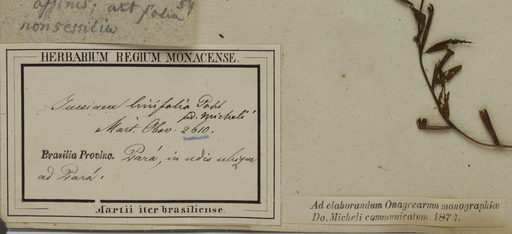 affinis; at folia 59
nonsessilia
HERBARIUM REGIUM MONACENSE.
Jussiaea linifolia Vahl
fid. Micheli
Mart. Obs. 2610.
Brasilia Provinc. Pará, in udis ubique
ad Pará.
Martii iter brasiliense.
Ad elaborandum Onagrearum monographiae
Do. Micheli communicatum. 1874.